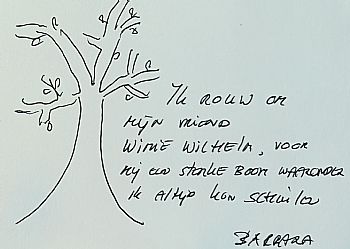 Ik rouw om
mijn vriend
Winie Wilhelm, voor
mij een sterke boom waaronder
ik altijd kon schuilen
Barbara